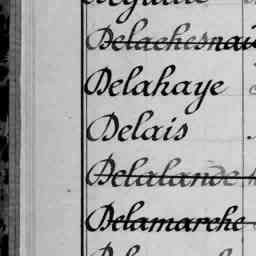 Delachesnai
Delahaye
Delais
Delalande
Delamarche